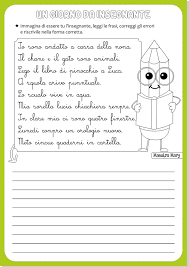 UN GIORNO DA INSEGNANTE
Immagina di essere tu l'insegnante, leggi le frasi, correggi gli errori
e riscrivile nella forma corretta.
Io sono andatto a cassa della nona.
Il chane e il gato sono animali.
Lego il libro di pinocchio a Luca.
Ci squola arivo punntuale.
Lo scualo vive in aqua.
Mia sorella lucia chiachiera sempre.
In clase mia ci sono quatro finestre.
Lunedì conpro un orologio nuovo.
Meto cinque cuaderni in cartella.
Maestra Mary